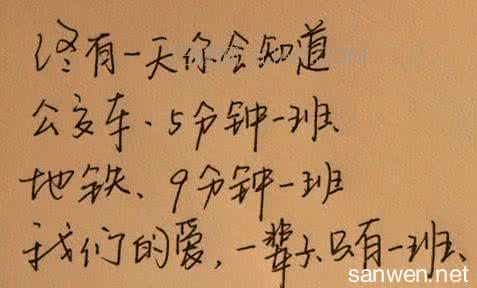 终有一天你会知道
公交车、5分钟一班、
地铁、9分钟一班
我们的爱,一辈子、只有一班、
sanwen.net